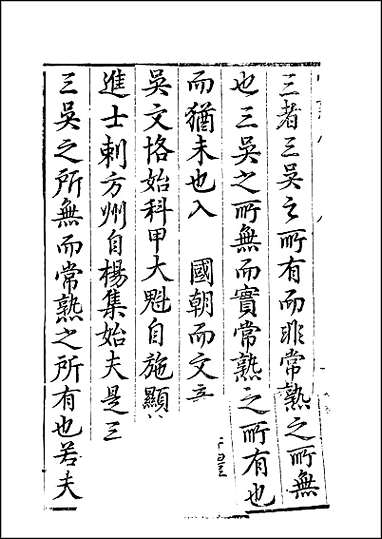 三者三吳之所有而非常熟之所無
也三吳之所無而實常熟之所有也
而猶未也入 國朝而文
吳文恪始科甲大魁自施顯
進士刺方州自楊集始夫是三
三吳之所無而常熟之所有也若夫